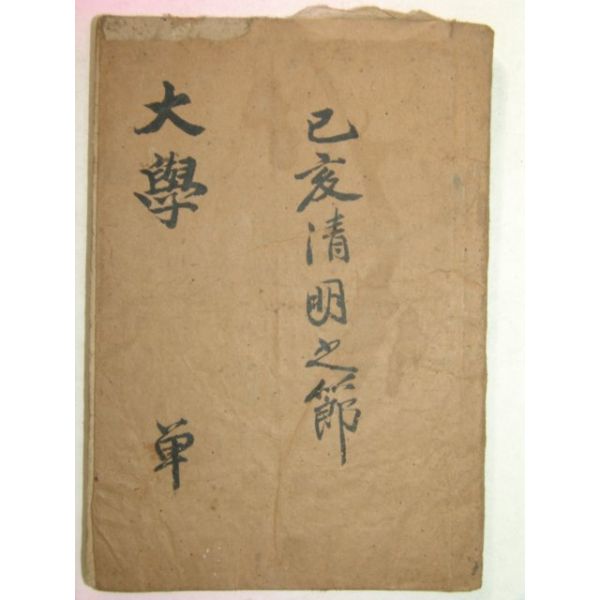 己亥清明之節
大學
単